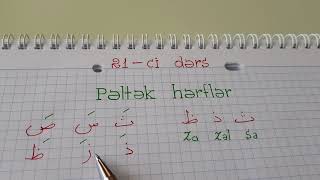 21-ci dərs
Pəltək hərflər
ث ذ ظ
Za Zəl Sə
ثَ سَ صَ
ذَ زَ ظَ